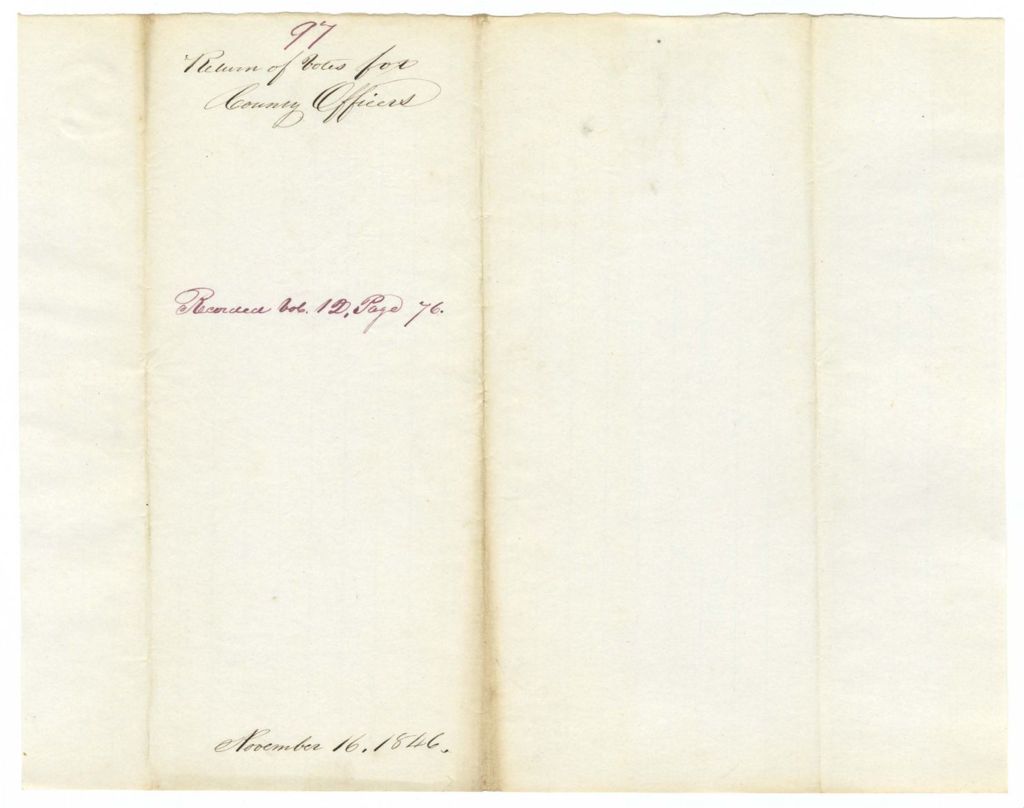 97
Return of Votes for
County Officers
Recorded Vol. 12, Page 76.
November 16, 1846.